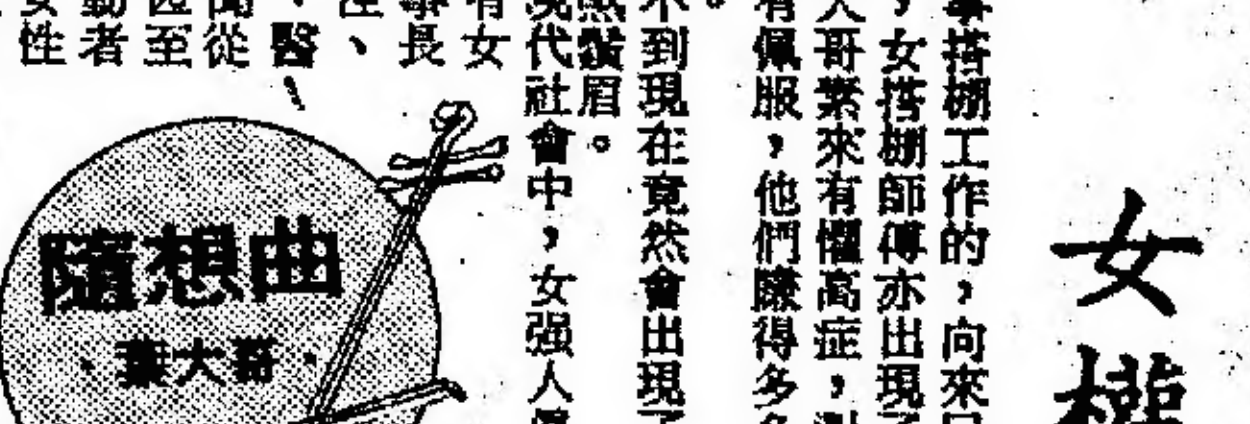 女權
搭棚工作的，向來
，女搭棚師傅亦出現了
大哥素來有懼高症，
有佩服，他們賺得多
。
不到現在竟然會出現了
煞鬚眉。
現代社會中，女强人
有女
長
、
、醫、
從
甚至
勤者
女性
隨想曲
·葉大哥·